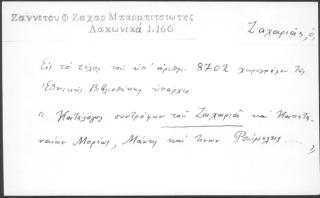 Ζαννετου Φ Ζαχαρ Μπαρμπιτσιωτης
Λακωνικά 1.166
Ζαχαριάς, ὁ,
Εἰς τὸ τέλος τοῦ ὑπ' ἀριθμ. 8702 χειρογράφου τῆς
Ἐθνικῆς Βιβλιοθήκης ὑπάρχει
"Κατάλογος συντρόφων τοῦ Ζαχαριᾶ καὶ Καπετα-
ναίων Μοριως, Μάνης καὶ τινων Ρούμελης....